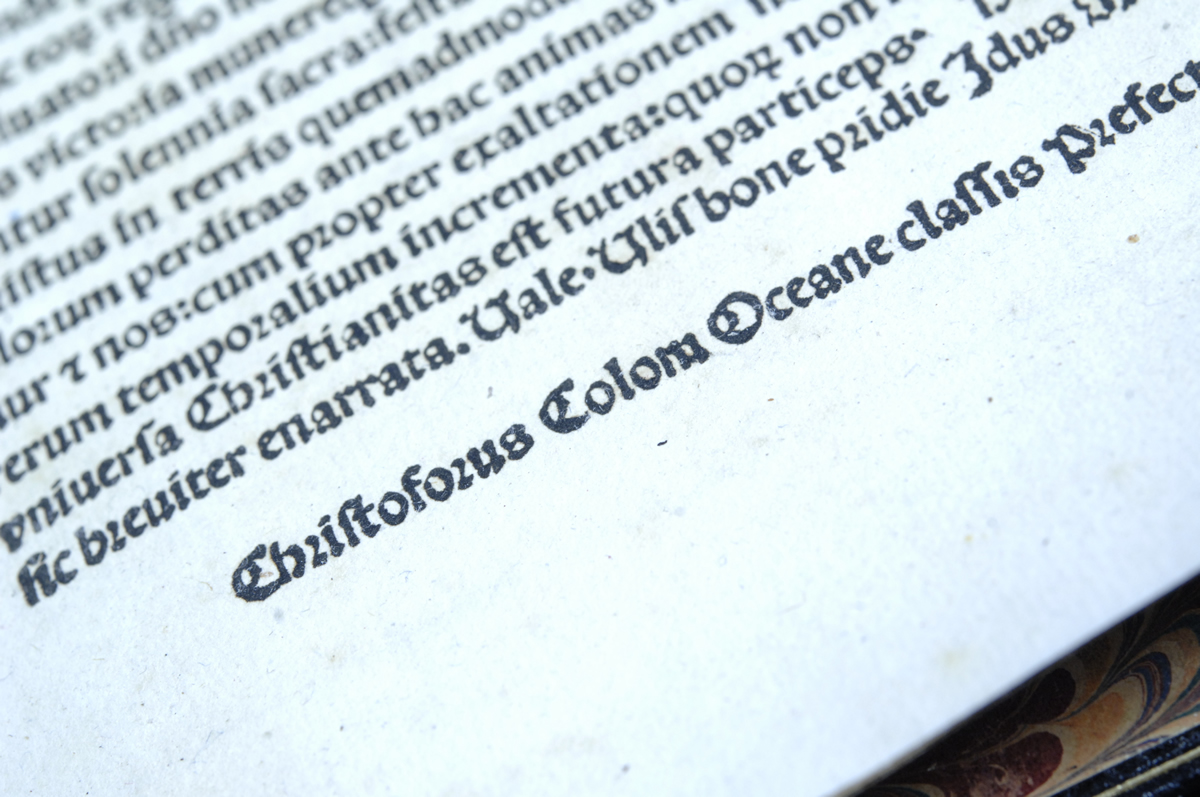 victoria munere
ntur solennia sacra: fest
istus in terris quemadmodu
lorum perditas ante hac animas
ur ⁊ nos: cum propter exaltationem
erum temporalium incrementa: quoꝝ non
vniuersa Christianitas est futura particeps.
sic breuiter enarrata. Uale. Ulisbone pridie Idus
Christoforus Colom Oceane classis Prefect